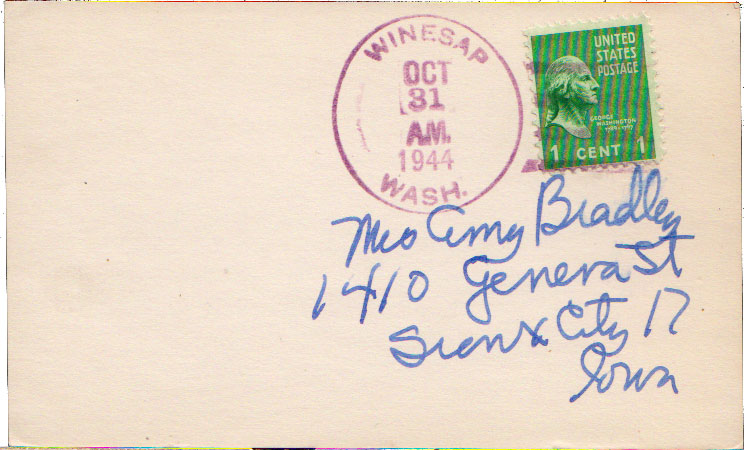 WINESAP
OCT
31
A.M.
1944
WASH.
UNITED
STATES
POSTAGE
GEORGE
WASHINGTON
1789-1797
1 CENT 1
Mrs Amy Bradley
1410 Geneva St
Sioux City 17
Iowa